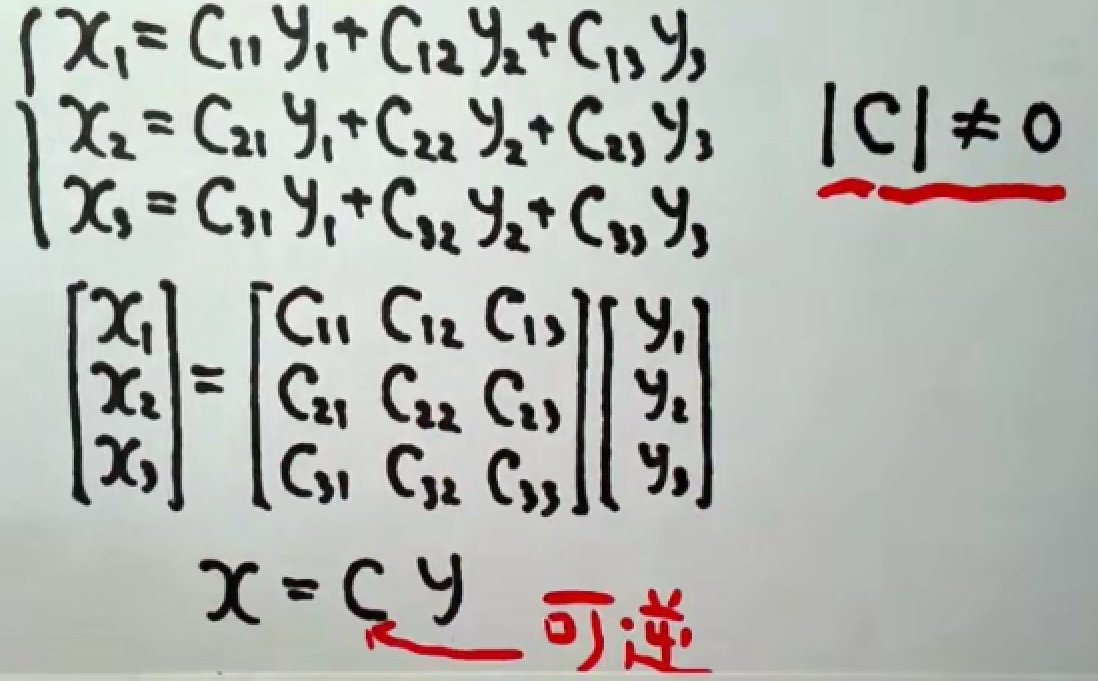 x₁ = C₁₁ y₁ + C₁₂ y₂ + C₁₃ y₃
x₂ = C₂₁ y₁ + C₂₂ y₂ + C₂₃ y₃
x₃ = C₃₁ y₁ + C₃₂ y₂ + C₃₃ y₃
|C| ≠ 0
[x₁] = [C₁₁ C₁₂ C₁₃] [y₁]
[x₂] = [C₂₁ C₂₂ C₂₃] [y₂]
[x₃] = [C₃₁ C₃₂ C₃₃] [y₃]
x = C y
可逆